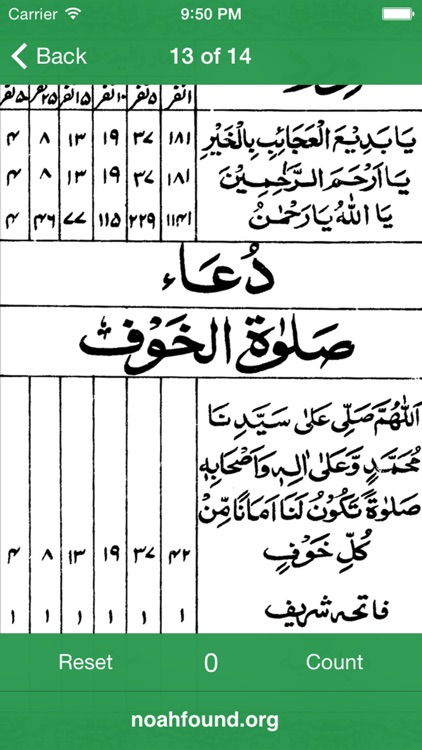 Carrier 9:50 PM
Back 13 of 14
۱نفر ۵نفر ۱۰نفر ۱۵نفر ۲۵نفر
یَا بَدِیْعَ الْعَجَائِبِ بِالْخَیْرِ ۱۸۱ ۳۷ ۱۹ ۱۳ ۸ ۴
یَا اَرْحَمَ الرَّحِمِیْنَ ۱۸۱ ۳۷ ۱۹ ۱۳ ۸ ۴
یَا اَللّٰهُ یَا رَحْمٰنُ ۱۱۴۱ ۲۲۹ ۱۱۵ ۷۷ ۴۶ ۴
دُعَاء
صَلٰوةُ الخَوْف
اَللّٰهُمَّ صَلِّی عَلٰی سَیِّدِنَا
مُحَمَّدٍ وَّعَلٰی اٰلِهٖ وَاَصْحَابِهٖ
صَلٰوةً تَکُوْنُ لَنَا اَمَانًا مِّنْ
کُلِّ خَوْفٍ ۴۲ ۳۷ ۱۹ ۱۳ ۸ ۴
فاتحہ شریف ۱ ۱ ۱ ۱ ۱ ۱
Reset 0 Count
noahfound.org